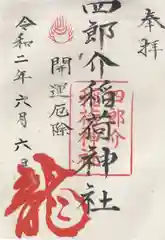 奉拝
四郎介稲荷神社
開運厄除
令和二年六月六日
四郎介
稲荷神社
龍